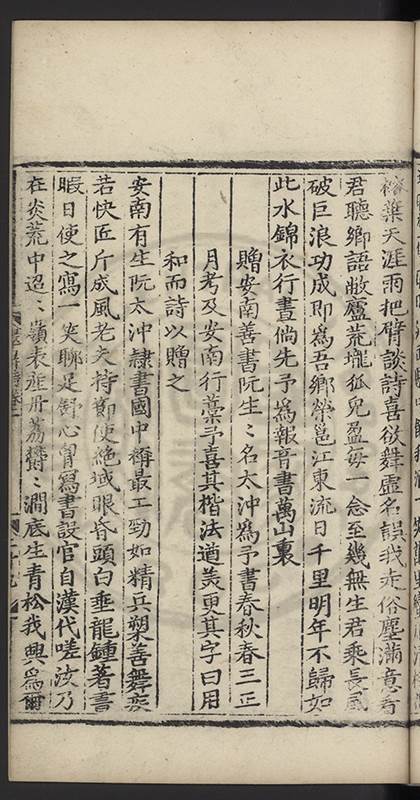 天涯雨把臂談詩喜欲舞虛名誤我走俗塵滿意奇
君聽鄉語敝廬荒壠狐兒盈每一念至幾無生君乘長風
破巨浪功成即爲吾鄉榮邕江東流日千里明年不歸如
此水錦衣行晝倘先予爲報音書萬山裏
贈安南善書阮生〻名太沖爲予書春秋春三正
月考及安南行藁予喜其楷法遒美更其字曰用
和而詩以贈之
安南有生阮太沖隸書國中稱最工勁如精兵槊善舞疾
若快匠斤成風老夫持節使絶域眼昏頭白垂龍鍾著書
暇日使之寫一笑聊足舒心胷寫書設官自漢代嗟汝乃
在炎荒中迢〻嶺表産丹荔鬱〻澗底生青松我興爲爾